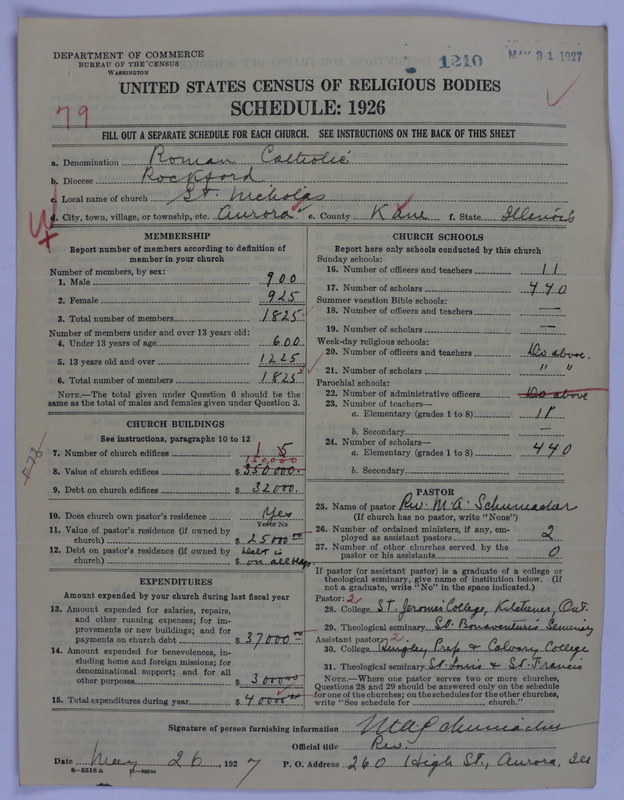 DEPARTMENT OF COMMERCE
BUREAU OF THE CENSUS
WASHINGTON
1210
MAY 31 1927
UNITED STATES CENSUS OF RELIGIOUS BODIES
SCHEDULE: 1926
79
FILL OUT A SEPARATE SCHEDULE FOR EACH CHURCH. SEE INSTRUCTIONS ON THE BACK OF THIS SHEET
a. Denomination Roman Catholic
b. Diocese Rockford
c. Local name of church St. Nicholas
d. City, town, village, or township, etc. Aurora e. County Kane f. State Illinois
MEMBERSHIP
Report number of members according to definition of
member in your church
Number of members, by sex:
1. Male 900
2. Female 925
3. Total number of members 1825
Number of members under and over 13 years old:
4. Under 13 years of age 600
5. 13 years old and over 1225
6. Total number of members 1825
NOTE.—The total given under Question 6 should be the
same as the total of males and females given under Question 3.
CHURCH BUILDINGS
See instructions, paragraphs 10 to 12
7. Number of church edifices 1 5
150,000
8. Value of church edifices $ 350,000.
9. Debt on church edifices $ 32,000.
10. Does church own pastor's residence Yes
Yes or No
11. Value of pastor's residence (if owned by
church) $ 25000.00
12. Debt on pastor's residence (if owned by
church) $ Debt is on all
EXPENDITURES
Amount expended by your church during last fiscal year
13. Amount expended for salaries, repairs,
and other running expenses; for im-
provements or new buildings; and for
payments on church debt $ 37000.00
14. Amount expended for benevolences, in-
cluding home and foreign missions; for
denominational support; and for all
other purposes $ 3000.00
15. Total expenditures during year $ 40000.00
CHURCH SCHOOLS
Report here only schools conducted by this church
Sunday schools:
16. Number of officers and teachers 11
17. Number of scholars 440
Summer vacation Bible schools:
18. Number of officers and teachers —
19. Number of scholars —
Week-day religious schools:
20. Number of officers and teachers Do above.
21. Number of scholars " "
Parochial schools:
22. Number of administrative officers Do above
23. Number of teachers—
a. Elementary (grades 1 to 8) 11
b. Secondary —
24. Number of scholars—
a. Elementary (grades 1 to 8) 440
b. Secondary
PASTOR
25. Name of pastor Rev. M. A. Schumacher
(If church has no pastor, write "None")
26. Number of ordained ministers, if any, em-
ployed as assistant pastors 2
27. Number of other churches served by the
pastor or his assistants 0
If pastor (or assistant pastor) is a graduate of a college or
theological seminary, give name of institution below. (If
not a graduate, write "No" in the space indicated.)
Pastor: 2
28. College St. Jerome's College, Kitchener, Ont.
29. Theological seminary St. Bonaventure's Seminary
Assistant pastor: 2
30. College Prep & Calvary College
31. Theological seminary St. Louis & St. Francis
NOTE.—Where one pastor serves two or more churches,
Questions 28 and 29 should be answered only on the schedule
for one of the churches; on the schedules for the other churches,
write "See schedule for church."
Signature of person furnishing information M A Schumacher
Official title Rev.
Date May 26, 1927 P. O. Address 260 High St., Aurora, Ill
8-5518a